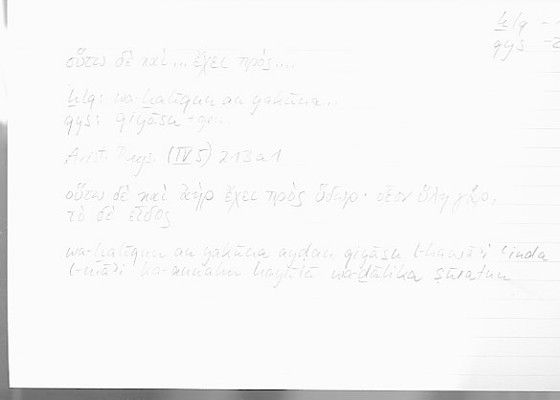 ḫlq -
qys -2
οὕτω δὲ καὶ ... ἔχει πρός ....
ḫlq: wa-ḫalīqun an yakūna ..
qys: qiyāsu -
Arist. Phys. (IV 5) 213 a 1
οὕτω δὲ καὶ ἀὴρ ἔχει πρὸς ὕδωρ· οἷον ὕλη γάρ,
τὸ δὲ εἶδος
wa-ḫalīqun an yakūna ayḍan qiyāsu l-hawāʾi ʿinda
l-māʾi ka-annahu hayūlā wa-ḏālika ṣūratun